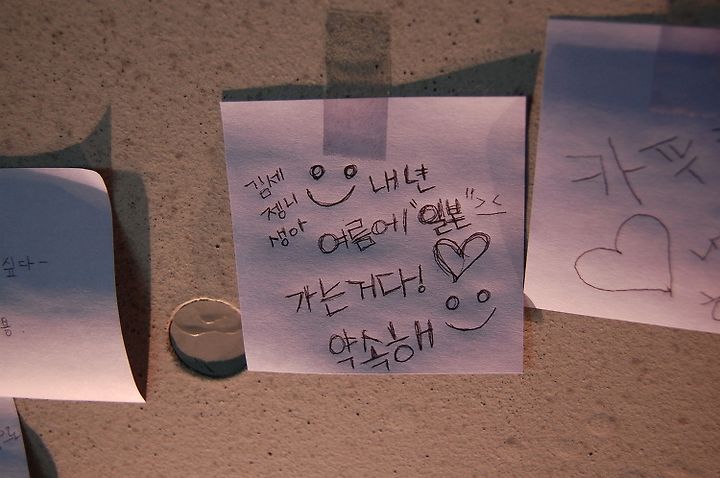 싶다~
용.
김세
젱니
생아
내년
여름에 "일본" ><
가는거다!
약속해
카풋